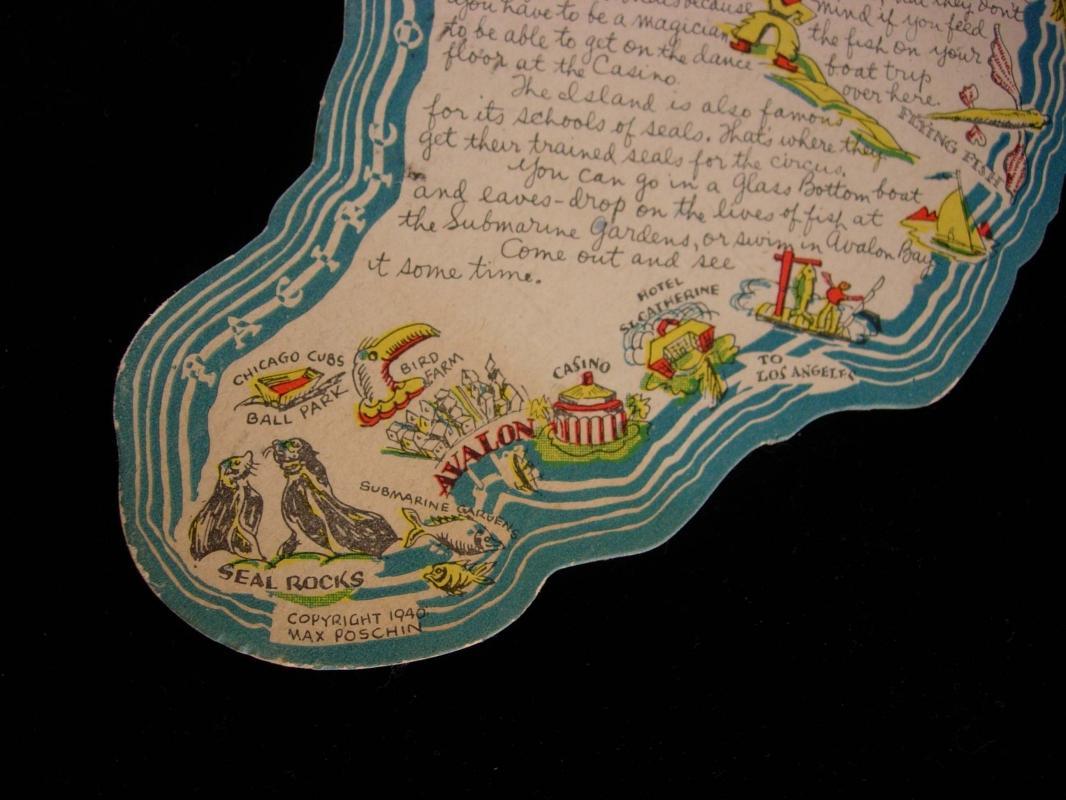 because
that they don't
you have to be a magician
mind if you feed
to be able to get on the dance
the fish on your
floor at the Casino.
boat trip
over here.
The Island is also famous
for its schools of seals. That's where they
get their trained seals for the circus.
You can go in a Glass Bottom boat
and eaves-drop on the lives of fish at
the Submarine Gardens, or swim in Avalon Bay
Come out and see
it some time.
FLYING FISH
PACIFIC
HOTEL
ST CATHERINE
TO
LOS ANGELES
CASINO
BIRD
FARM
CHICAGO CUBS
BALL PARK
AVALON
SUBMARINE GARDENS
SEAL ROCKS
COPYRIGHT 1940
MAX POSCHIN